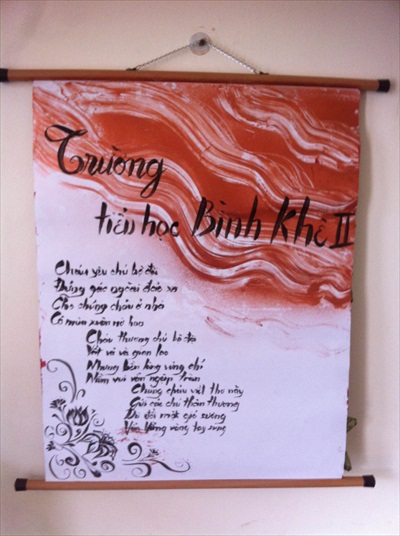 Trường
tiểu học Bình Khê II
Cháu yêu chú bộ đội
Đứng gác ngoài đảo xa
Cho chúng cháu ở nhà
Có mùa xuân nở hoa
Cháu thương chú bộ đội
Vất vả và gian lao
Nhưng bền lòng vững chí
Niềm vui vẫn ngập tràn
Chúng cháu viết thơ này
Gửi các chú thân thương
Dù dãi nắt gió sương
Vẫn vững vàng tay súng